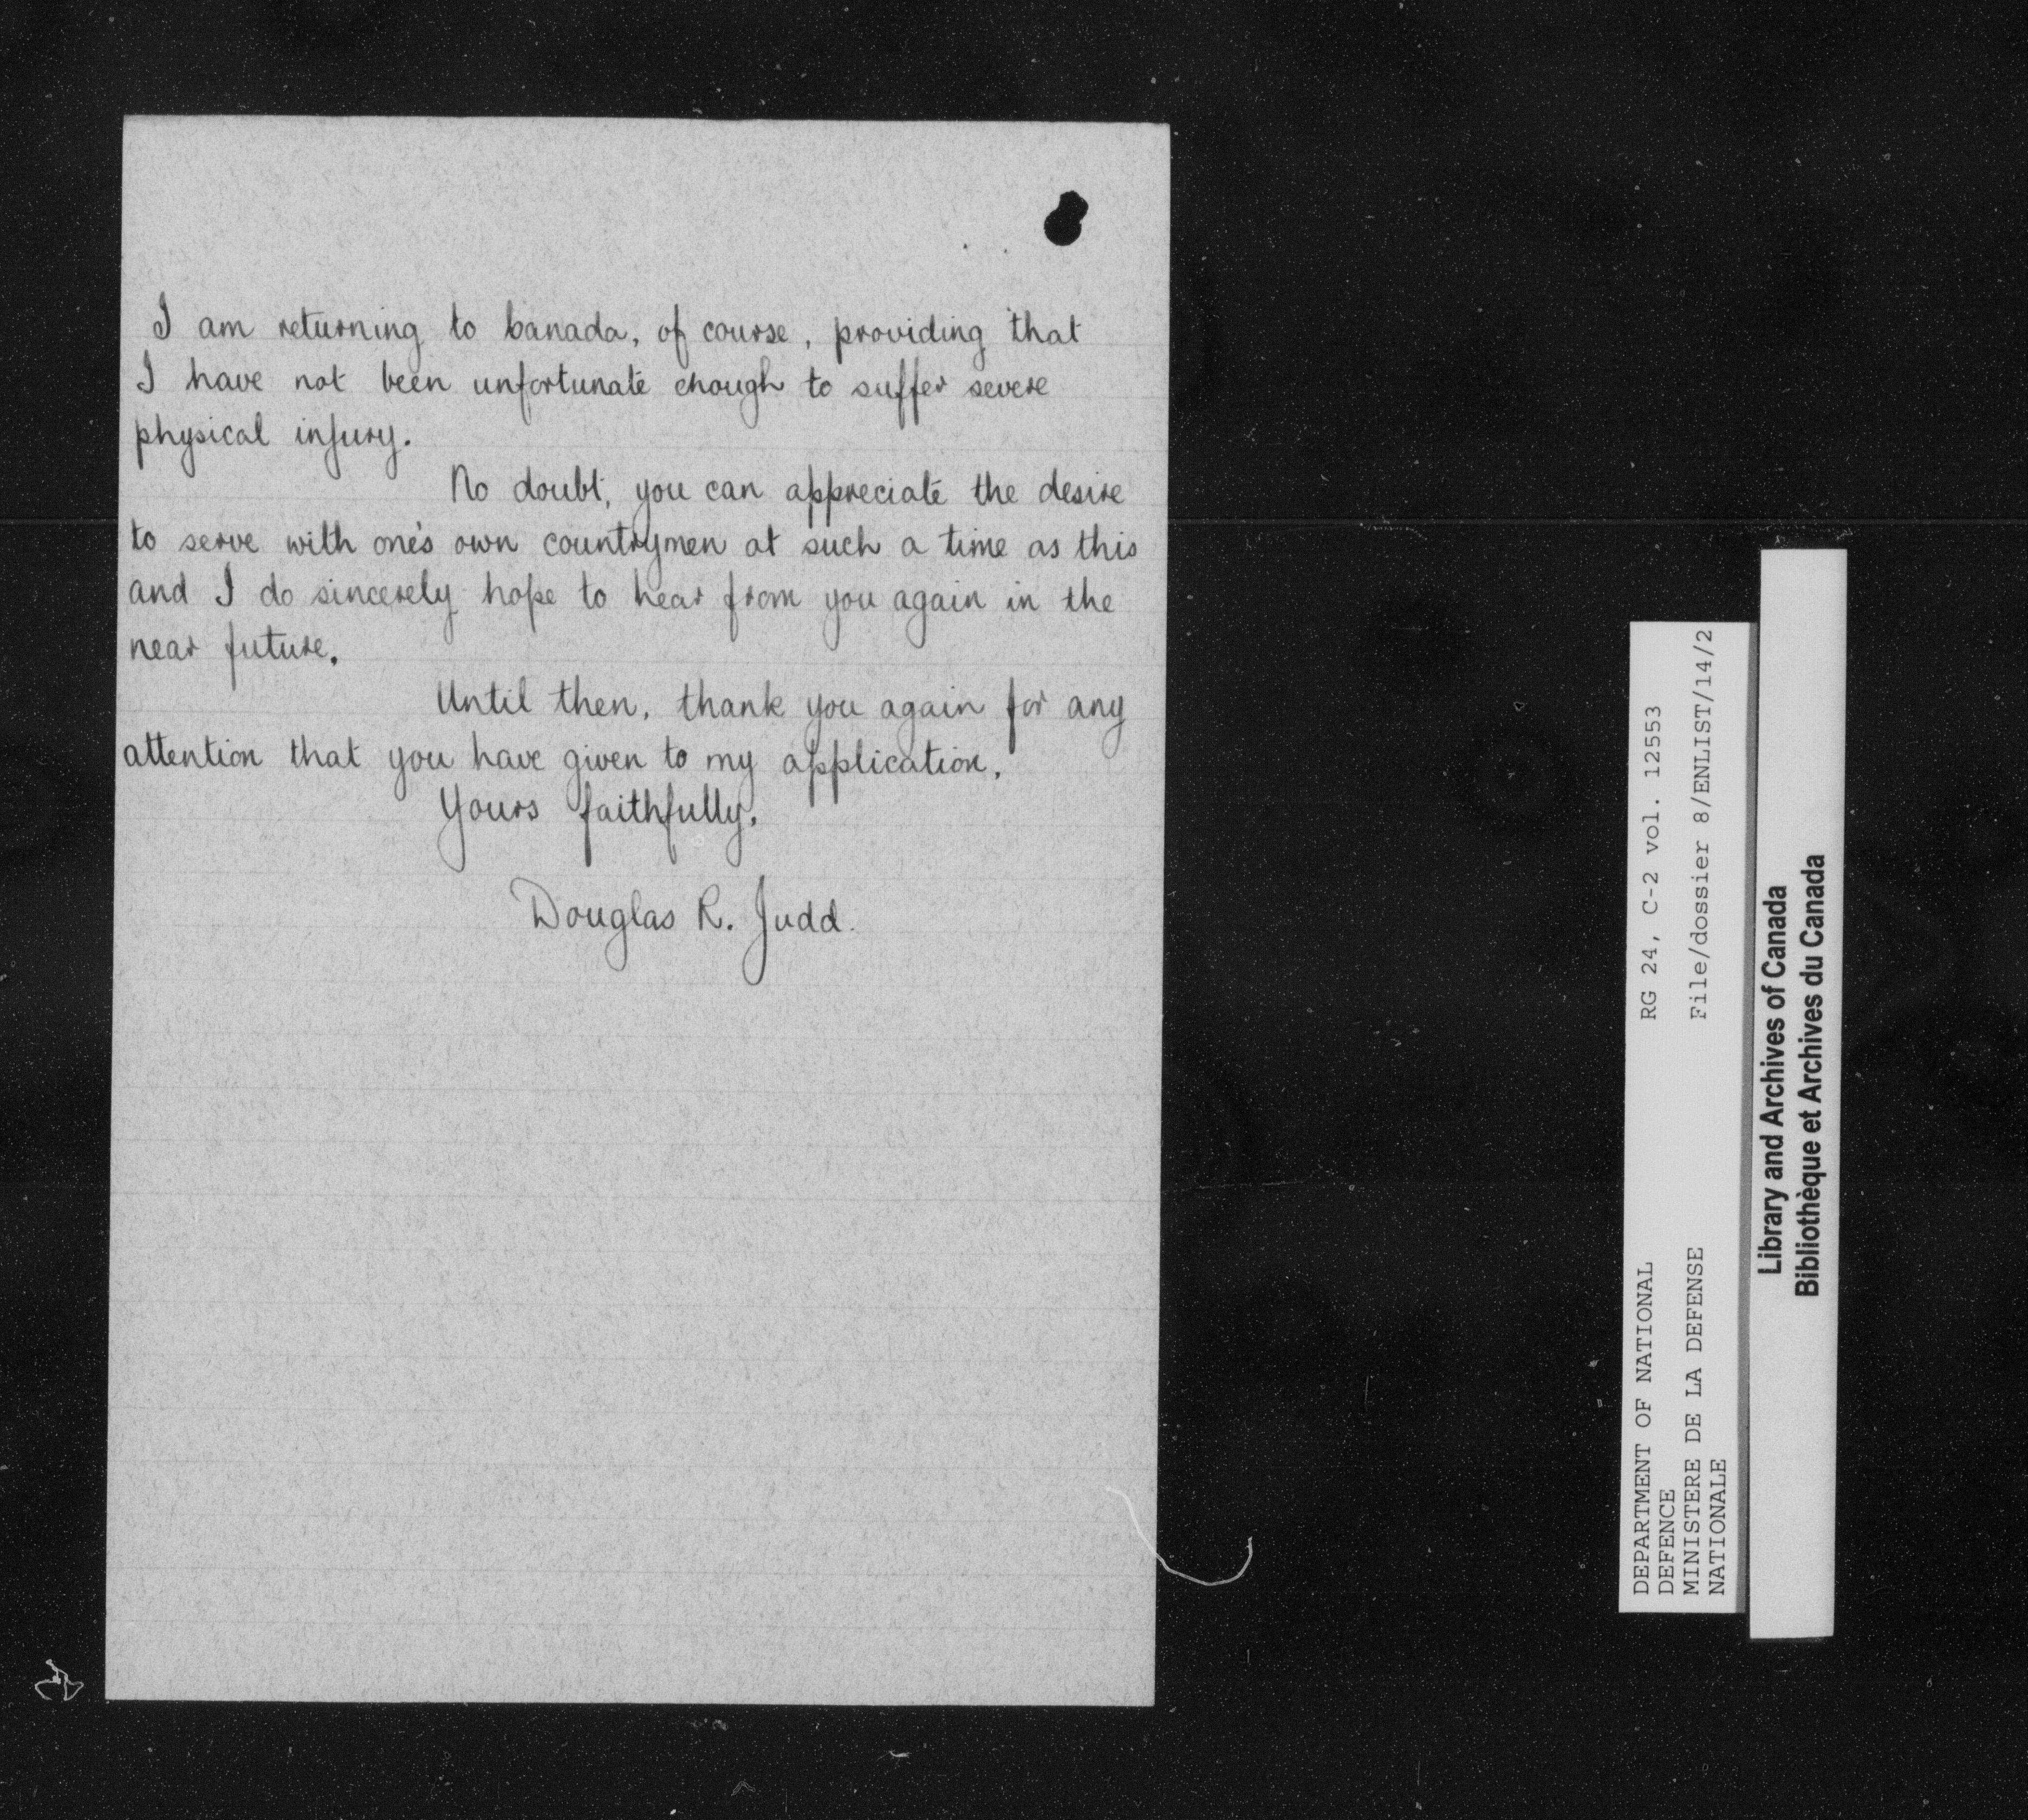 I am returning to Canada, of course, providing that
I have not been unfortunate enough to suffer severe
physical injury.
No doubt, you can appreciate the desire
to serve with one's own countrymen at such a time as this
and I do sincerely hope to hear from you again in the
near future.
Until then, thank you again for any
attention that you have given to my application.
Yours faithfully,
Douglas R. Judd.
DEPARTMENT OF NATIONAL
DEFENCE
MINISTERE DE LA DEFENSE
NATIONALE
RG 24, C-2 vol. 12553
File/dossier 8/ENLIST/14/2
Library and Archives of Canada
Bibliothèque et Archives du Canada